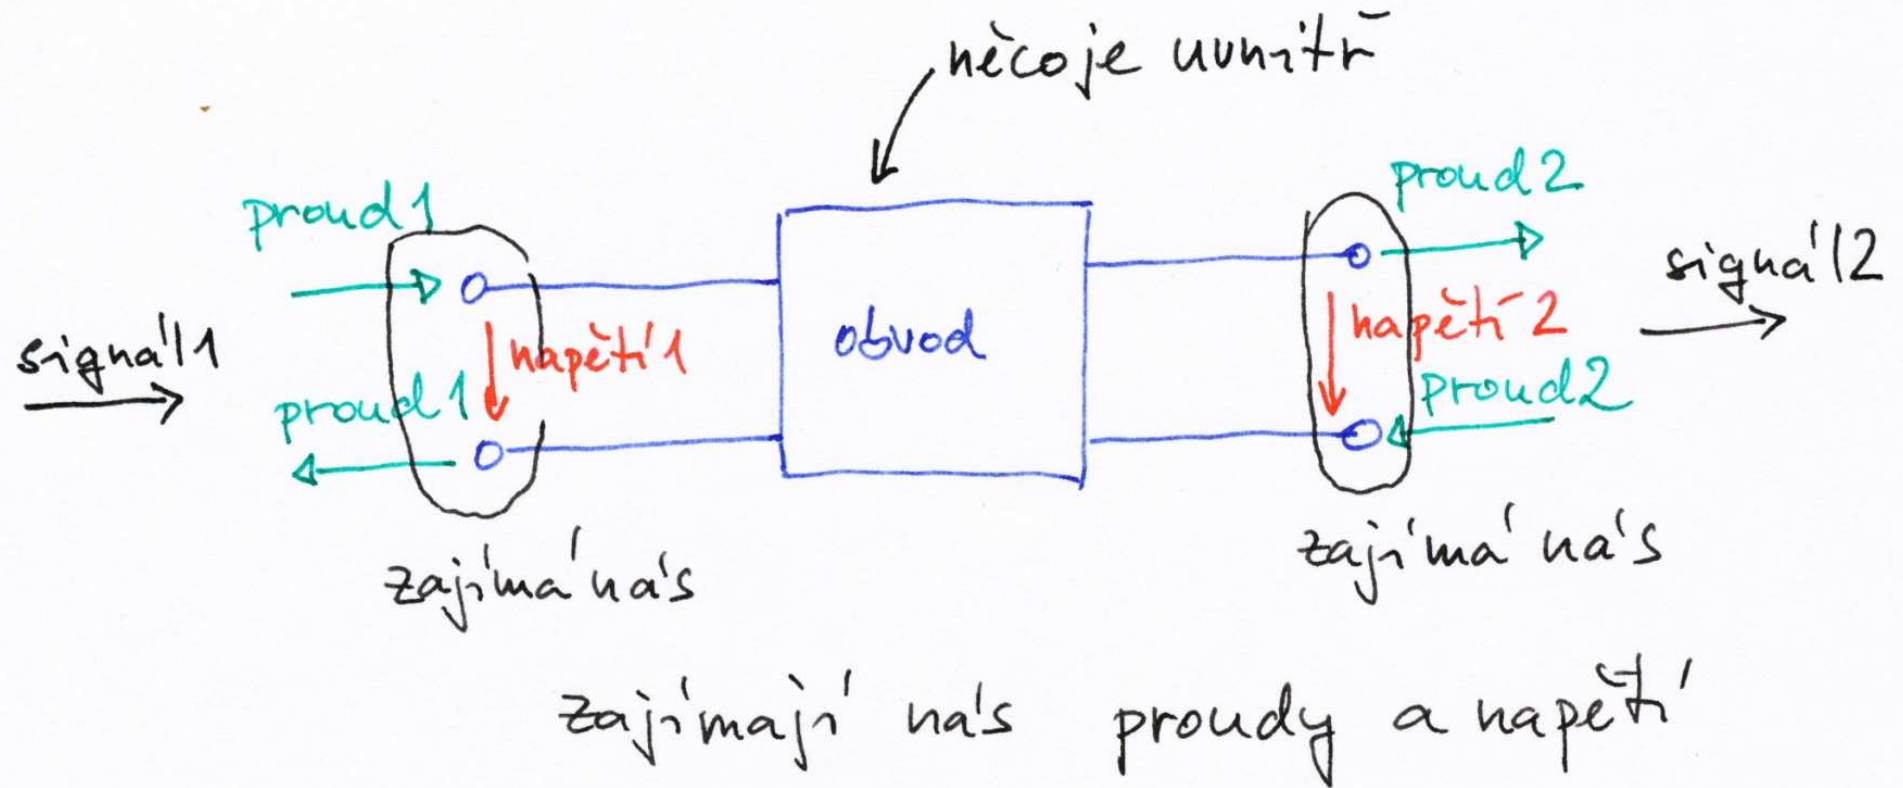 něco je uvnitř
proud 1
proud 2
signál 1
napětí 1
obvod
napětí 2
signál 2
proud 1
proud 2
zajímá nás
zajímá nás
zajímají nás proudy a napětí